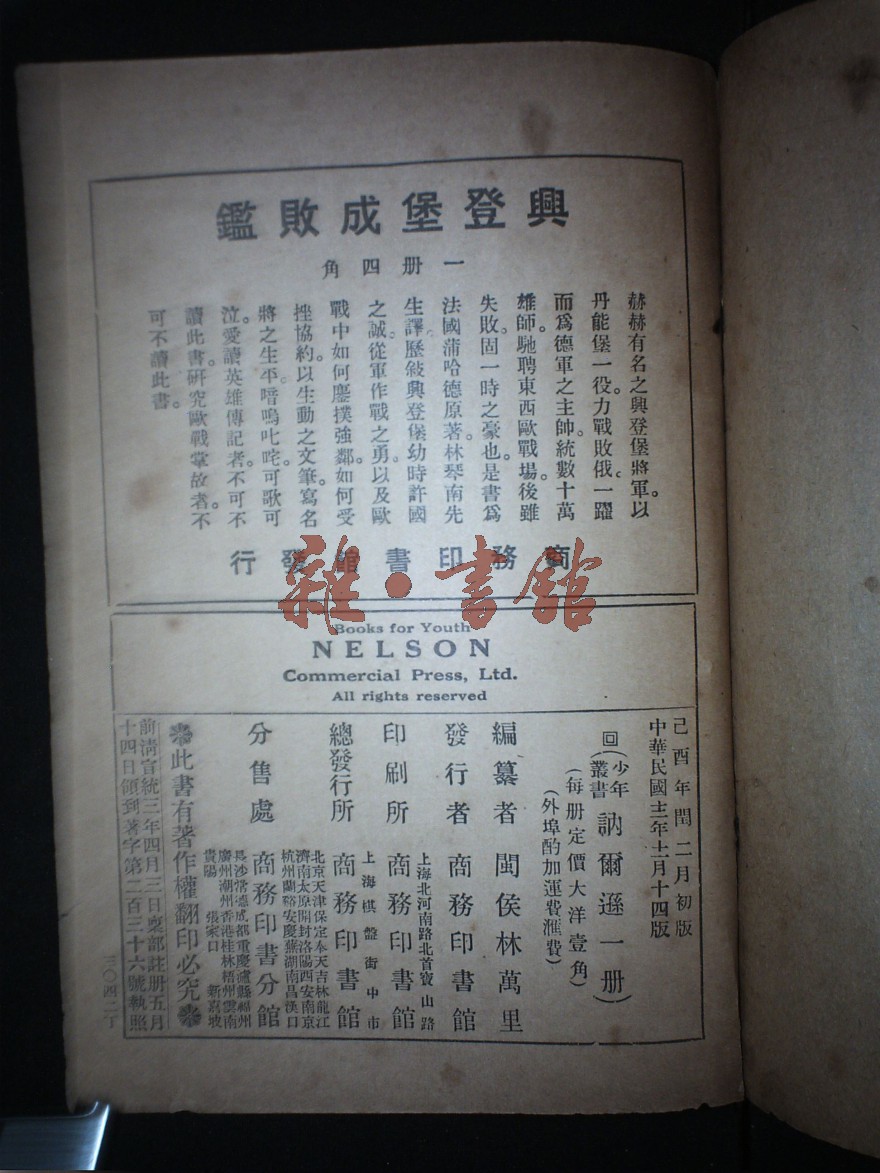 興登堡成敗鑑
一册四角
赫赫有名之興登堡將軍。以
丹能堡一役。力戰敗俄。一躍
而爲德軍之主帥。統數十萬
雄師。馳騁東西歐戰場。後雖
失敗。固一時之豪也。是書爲
法國蒲哈德原著。林琴南先
生譯。歷敍興登堡幼時許國
之誠。從軍作戰之勇。以及歐
戰中如何鏖撲強鄰。如何受
挫協約。以生動之文筆。寫名
將之生平。喑嗚叱咤。可歌可
泣。愛讀英雄傳記者。不可不
讀此書。研究歐戰掌故者。不
可不讀此書。
商務印書館發行
雜·書館
Books for Youth
NELSON
Commercial Press, Ltd.
All rights reserved
己酉年閏二月初版
中華民國十二年十二月十四版
回(少年叢書訥爾遜一册)
(每册定價大洋壹角)
(外埠酌加運費滙費)
編纂者 閩侯林萬里
發行者 商務印書館
上海北河南路北首寶山路
印刷所 商務印書館
上海棋盤街中市
總發行所 商務印書館
北京天津保定奉天吉林龍江
濟南太原開封洛陽西安南京
杭州蘭谿安慶蕪湖南昌漢口
分售處 商務印書分館
長沙常德成都重慶瀘縣福州
廣州潮州香港桂林梧州雲南
貴陽 張家口 新嘉坡
此書有著作權翻印必究
前清宣統三年四月三日稟部註册五月
十四日領到著字第二百三十六號執照
三〇四二丁